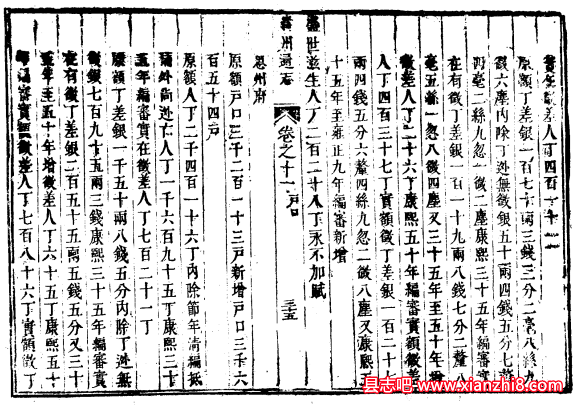 原額丁差銀一百七十兩三錢三分二毫八絲九
微六塵內除丁逃無徵銀五十兩四錢五分七釐
四毫二絲九忽一微二塵康熙三十五年編審實
在有徵丁差銀一百一十九兩八錢七分二釐八
毫五絲一忽八微四塵又三十五年至五十年增
徵差人丁二十六丁康熙五十年編審實額徵差
人丁四百三十七丁實額徵丁差銀一百二十七
兩四錢五分六釐四絲九忽二微八塵又康熙五
十五年至雍正九年編審新增
盛世滋生人丁二百二十八丁永不加賦
貴州通志
卷之十一 戶口
三五
思州府
原額戶口三千二百一十三戶新增戶口三千六
百五十四戶
原額人丁二千四百一十六丁內除節年清編抵
補外尚逃亡人丁一千六百九十五丁康熙三十
五年編審實在徵差人丁七百二十一丁
原額丁差銀一千五十兩八錢五分內除丁逃無
徵銀七百九十五兩三錢康熙三十五年編審實
在有徵丁差銀二百五十五兩五錢五分又三十
五年至五十年增徵差人丁六十五丁康熙五十
年編審實額徵差人丁七百八十六丁實額徵丁
县志吧 www.xianzhi8.com